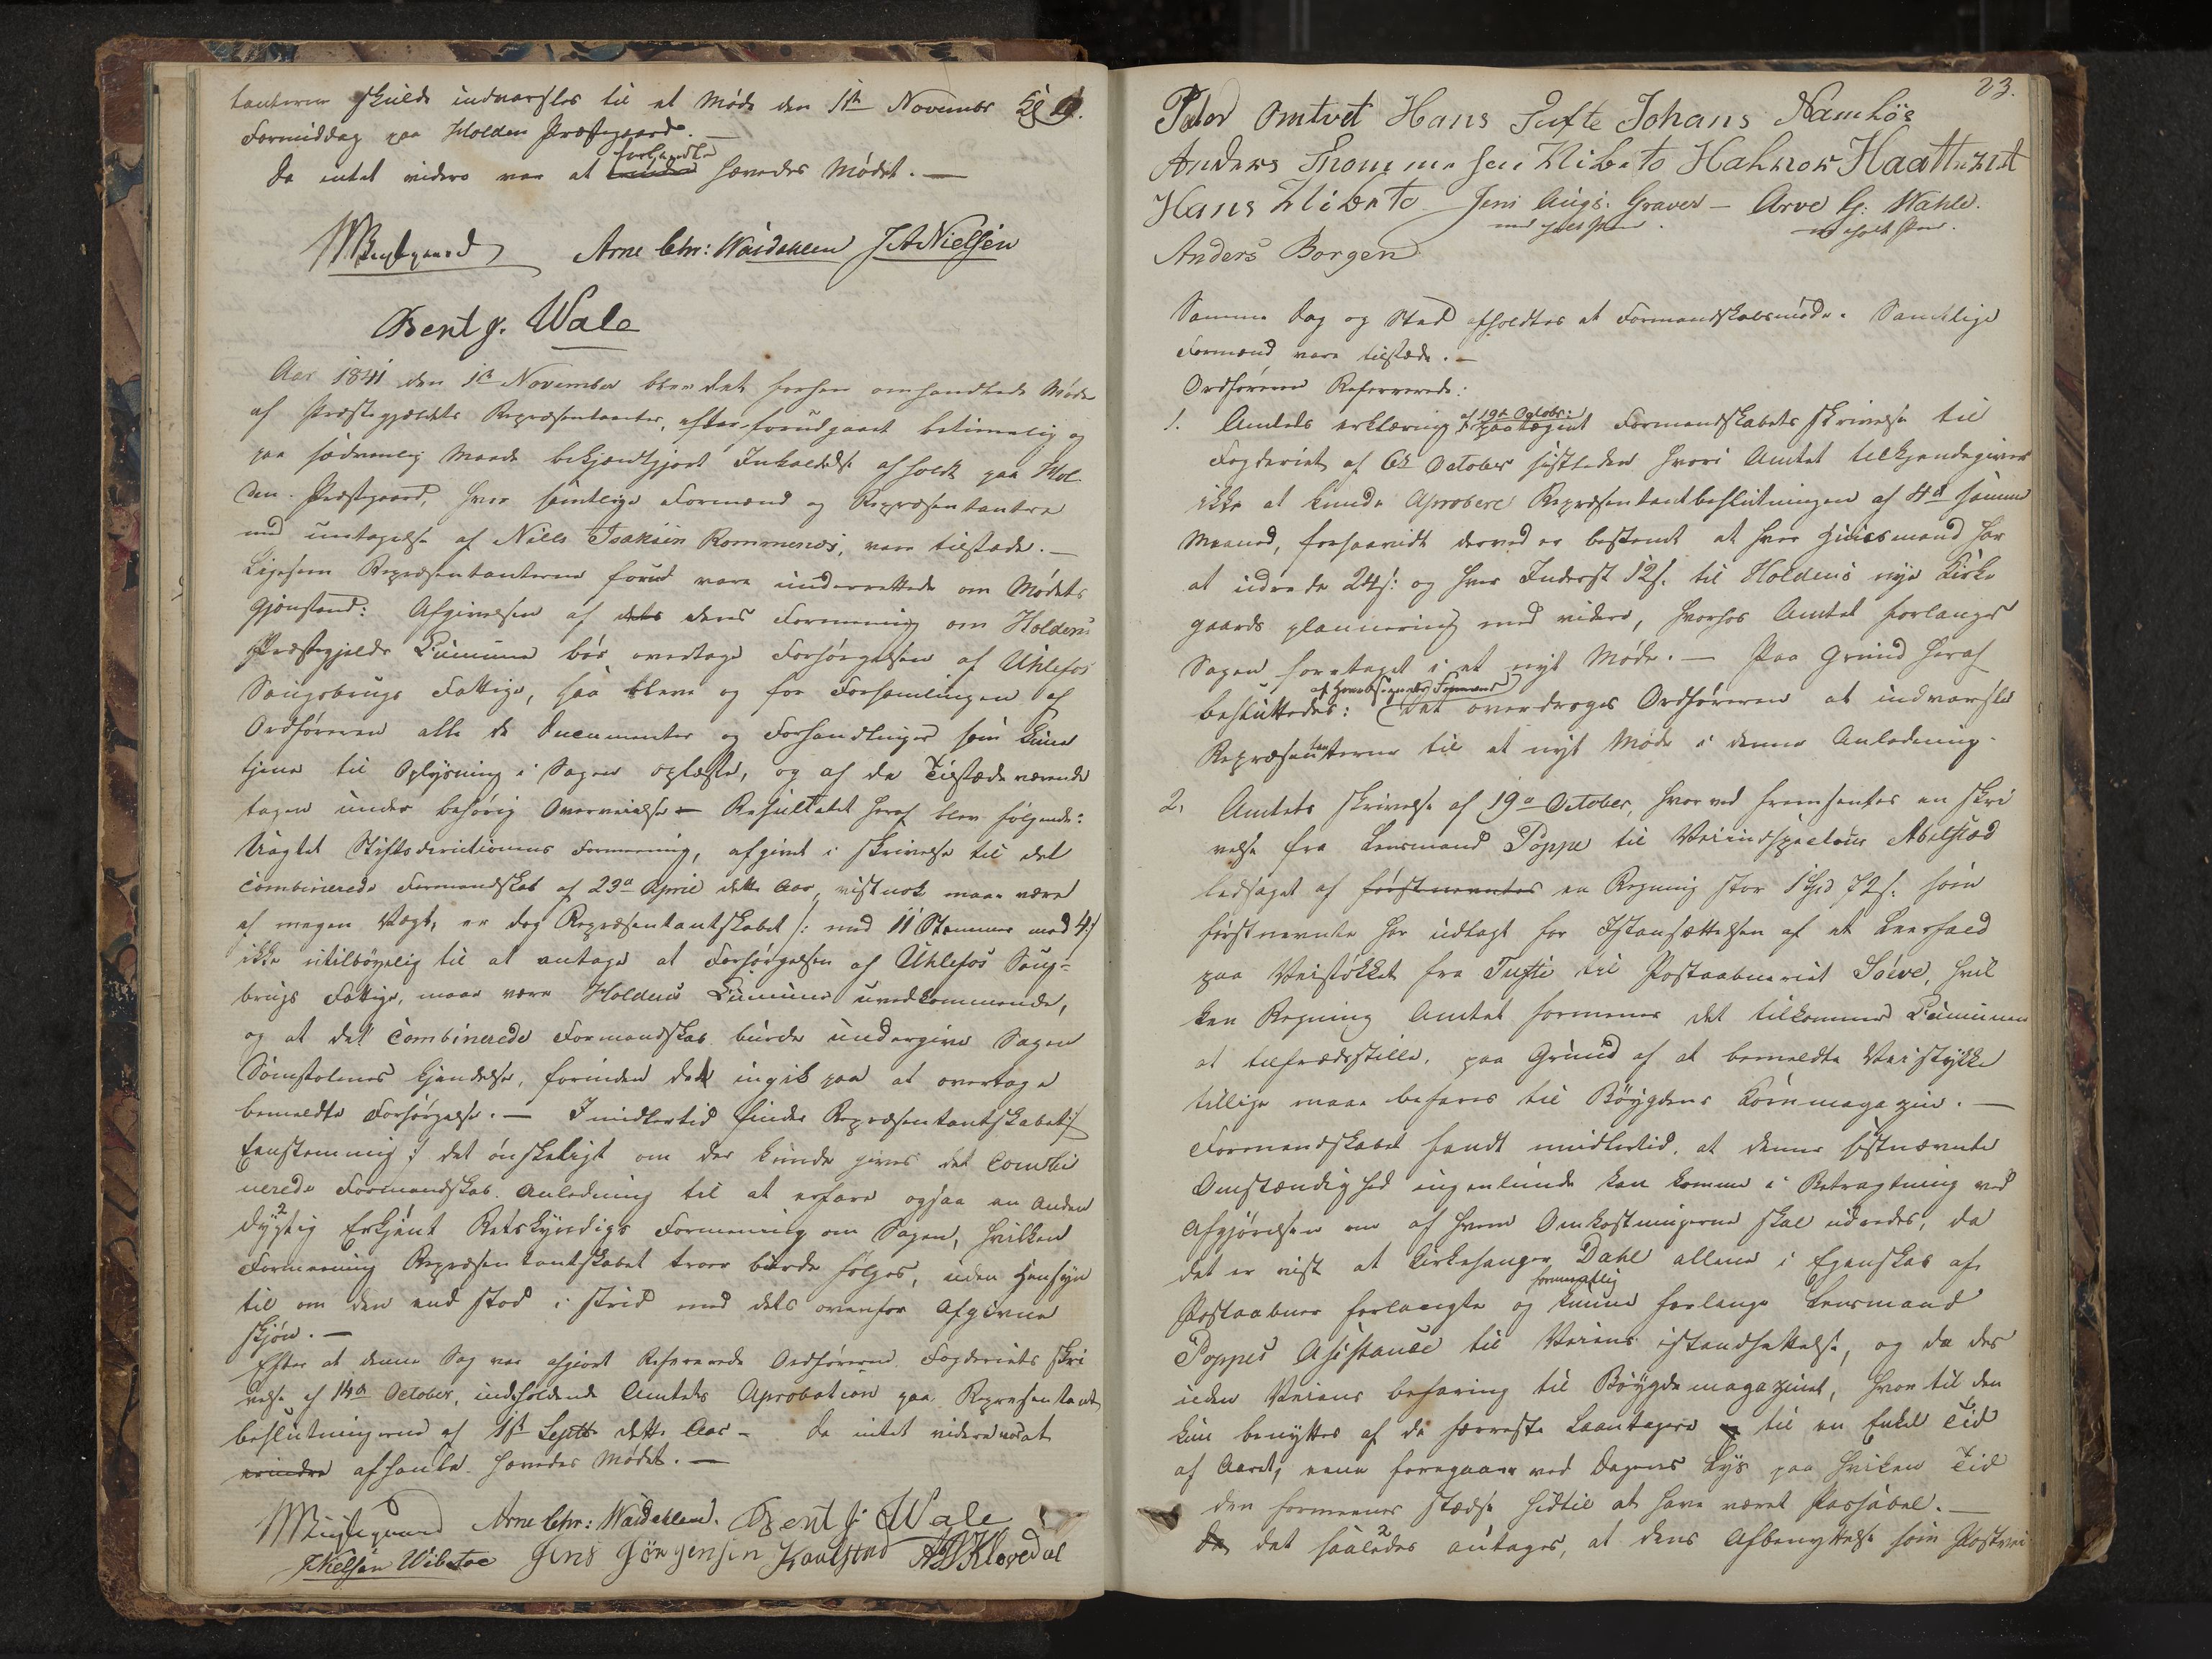 tanterne skulde indvarsles til et Møde den 1ste November Kl
Formiddag paa Holden Præstegaard. —
Da intet videre var at forhandle hævedes Mødet. —
Arne Chr: Waidahlen J A Nielsen
Bent J. Wale
Aar 1841 den 1ste November blev det forhen omhandlede Møde
af Præstegjældets Repræsentanter, efter forudgaaet betimelig og
paa sædvanlig Maade bekjendtgjort Indkaldelse afholdt paa Hol-
den Præstegaard, hvor samtlige Formænd og Repræsentantere
med undtagelse af Niels Isaksen Rommenæs, vare tilstæde. —
Ligesom Repræsentanterne forud vare underrettede om Mødets
Gjenstand: Afgivelsen af dets deres Formening om Holdens
Præstegjelds Comune bør overtage Forsørgelsen af Uhlefos
Saugbrugs Fattige, saa bleve og for Forsamlingen af
Ordføreren alle de Documenter og Forhandlinger som kunde
tjene til Oplysning i Sagen oplæste, og af de Tilstædeværende
tagen under behørig Overveielse — Resultatet heraf blev følgende:
Uagtet Stiftsdirectionens Formening, afgivet i skrivelse til det
combinerede Formandskab af 23de April dette Aar, vistnok maae være
af megen Vægt, er dog Repræsentantskabet /: med 11 Stemmer mod 4 :/
ikke tilbøyelig til at antage at Forsørgelsen af Uhlefos Saug-
brugs Fattige, maae være Holdens Comune uvedkommende,
og at det combinerede Formandskab burde undergive Sagen
Domstolenes Kjendelse, forinden det indgik paa at overtage
bemeldte Forsørgelse. — Imidlertid finder Repræsentantskabet /:
Eenstemmig :/ det ønskeligt om der kunde gives det combi
nerede Formandskab Anledning til at erfare ogsaa en anden
dygtig Erkjent Retskyndigs Formening om Sagen, hvilken
Formening Repræsentantskabet troer burde følges, uden Hensyn
til om den end stod i strid med dets ovenfor Afgivne
skjøn. —
Efter at denne Sag var afgjort Refererede Ordføreren Fogderiets skri
velse af 14de October, indeholdende Amtets Aprobation paa Repræsentant
beslutningerne af 1ste Septbr dette Aar — Da intet videre var at
erindre afhandle hævedes Mødet. —
Arne Chr: Waidahlen. Bent J. Wale
J Nielsen Wibetoe Jens Jörgensen Kaalstad
23.
Peder Omtvet Hans Tufte Johans Namløs
Anders Thommesen Wibeto Halvor Haatvedt
Hans Wibeto Jens Augs. Graver — Arve G: Wahle.
med holdt Pen. med holdt Pen.
Anders Borgen
Samme Dag og Sted afholdtes et Formandskabsmøde. Samtlige
Formænd vare tilstæde. —
Ordføreren Refererede:
1. Amtets erklæring af 19de Octobr: paategnet Formandskabets skrivelse til
Fogderiet af 6te October sistleden hvori Amtet tilkjendegiver
ikke at kunde Aprobere Repræsentantbeslutningen af 4de samme
Maaned, forsaavidt derved er bestemt at hver Huusmand har
at udrede 24 s: og hver Inderst 12 s. til Holdens nye Kirke
gaards planering med videre, hvorhos Amtet forlanger
Sagen foretaget i et nyt Møde. — Paa Grund heraf
besluttedes: Det overdroges Ordføreren at indvarsle
Repræsentanterne til et nyt Møde i denne Anledning.
2. Amtets skrivelse af 19de October, hvorved fremsendes en skri
velse fra Lensmand Poppe til Veiinspecteur Abelsted
ledsaget af førstnevntes en Regning stor 1 Spd 72 s. som
førstnevnte har udlagt for Istansættelsen af et Leerfald
paa Veistøkket fra Tufte til Postaabneriet Söve, hvil
ken Regning Amtet formener det tilkommer Comunen
at tilfredsstille, paa Grund af at bemeldte Veistykke
tillige maae befares til Böygdens Kornmagazin. —
Formandskabet fandt imidlertid, at denne sistnævnte
Omstændighed ingenlunde kan komme i Betragtning ved
Afgjørelsen om af hvem Omkostningerne skal udredes, da
det er vist at Kirkesanger Dahl allene i Egenskab af
Postaabner forlangte og kunne forlange Lensmand
Poppes Assistance til Veiens istandsættelse, og da der
uden Veiens befaring til Böygdemagazinet, hvortil den
kun benyttes af de færreste Laantagere til en Enkel Tid
af Aaret, kan foregaae ved Dagens Lys paa hvilken Tid
den formeenes stædse hidtil at have været Passabel. —
Da det saaledes antages, at dens Afbenyttelse som Postvei